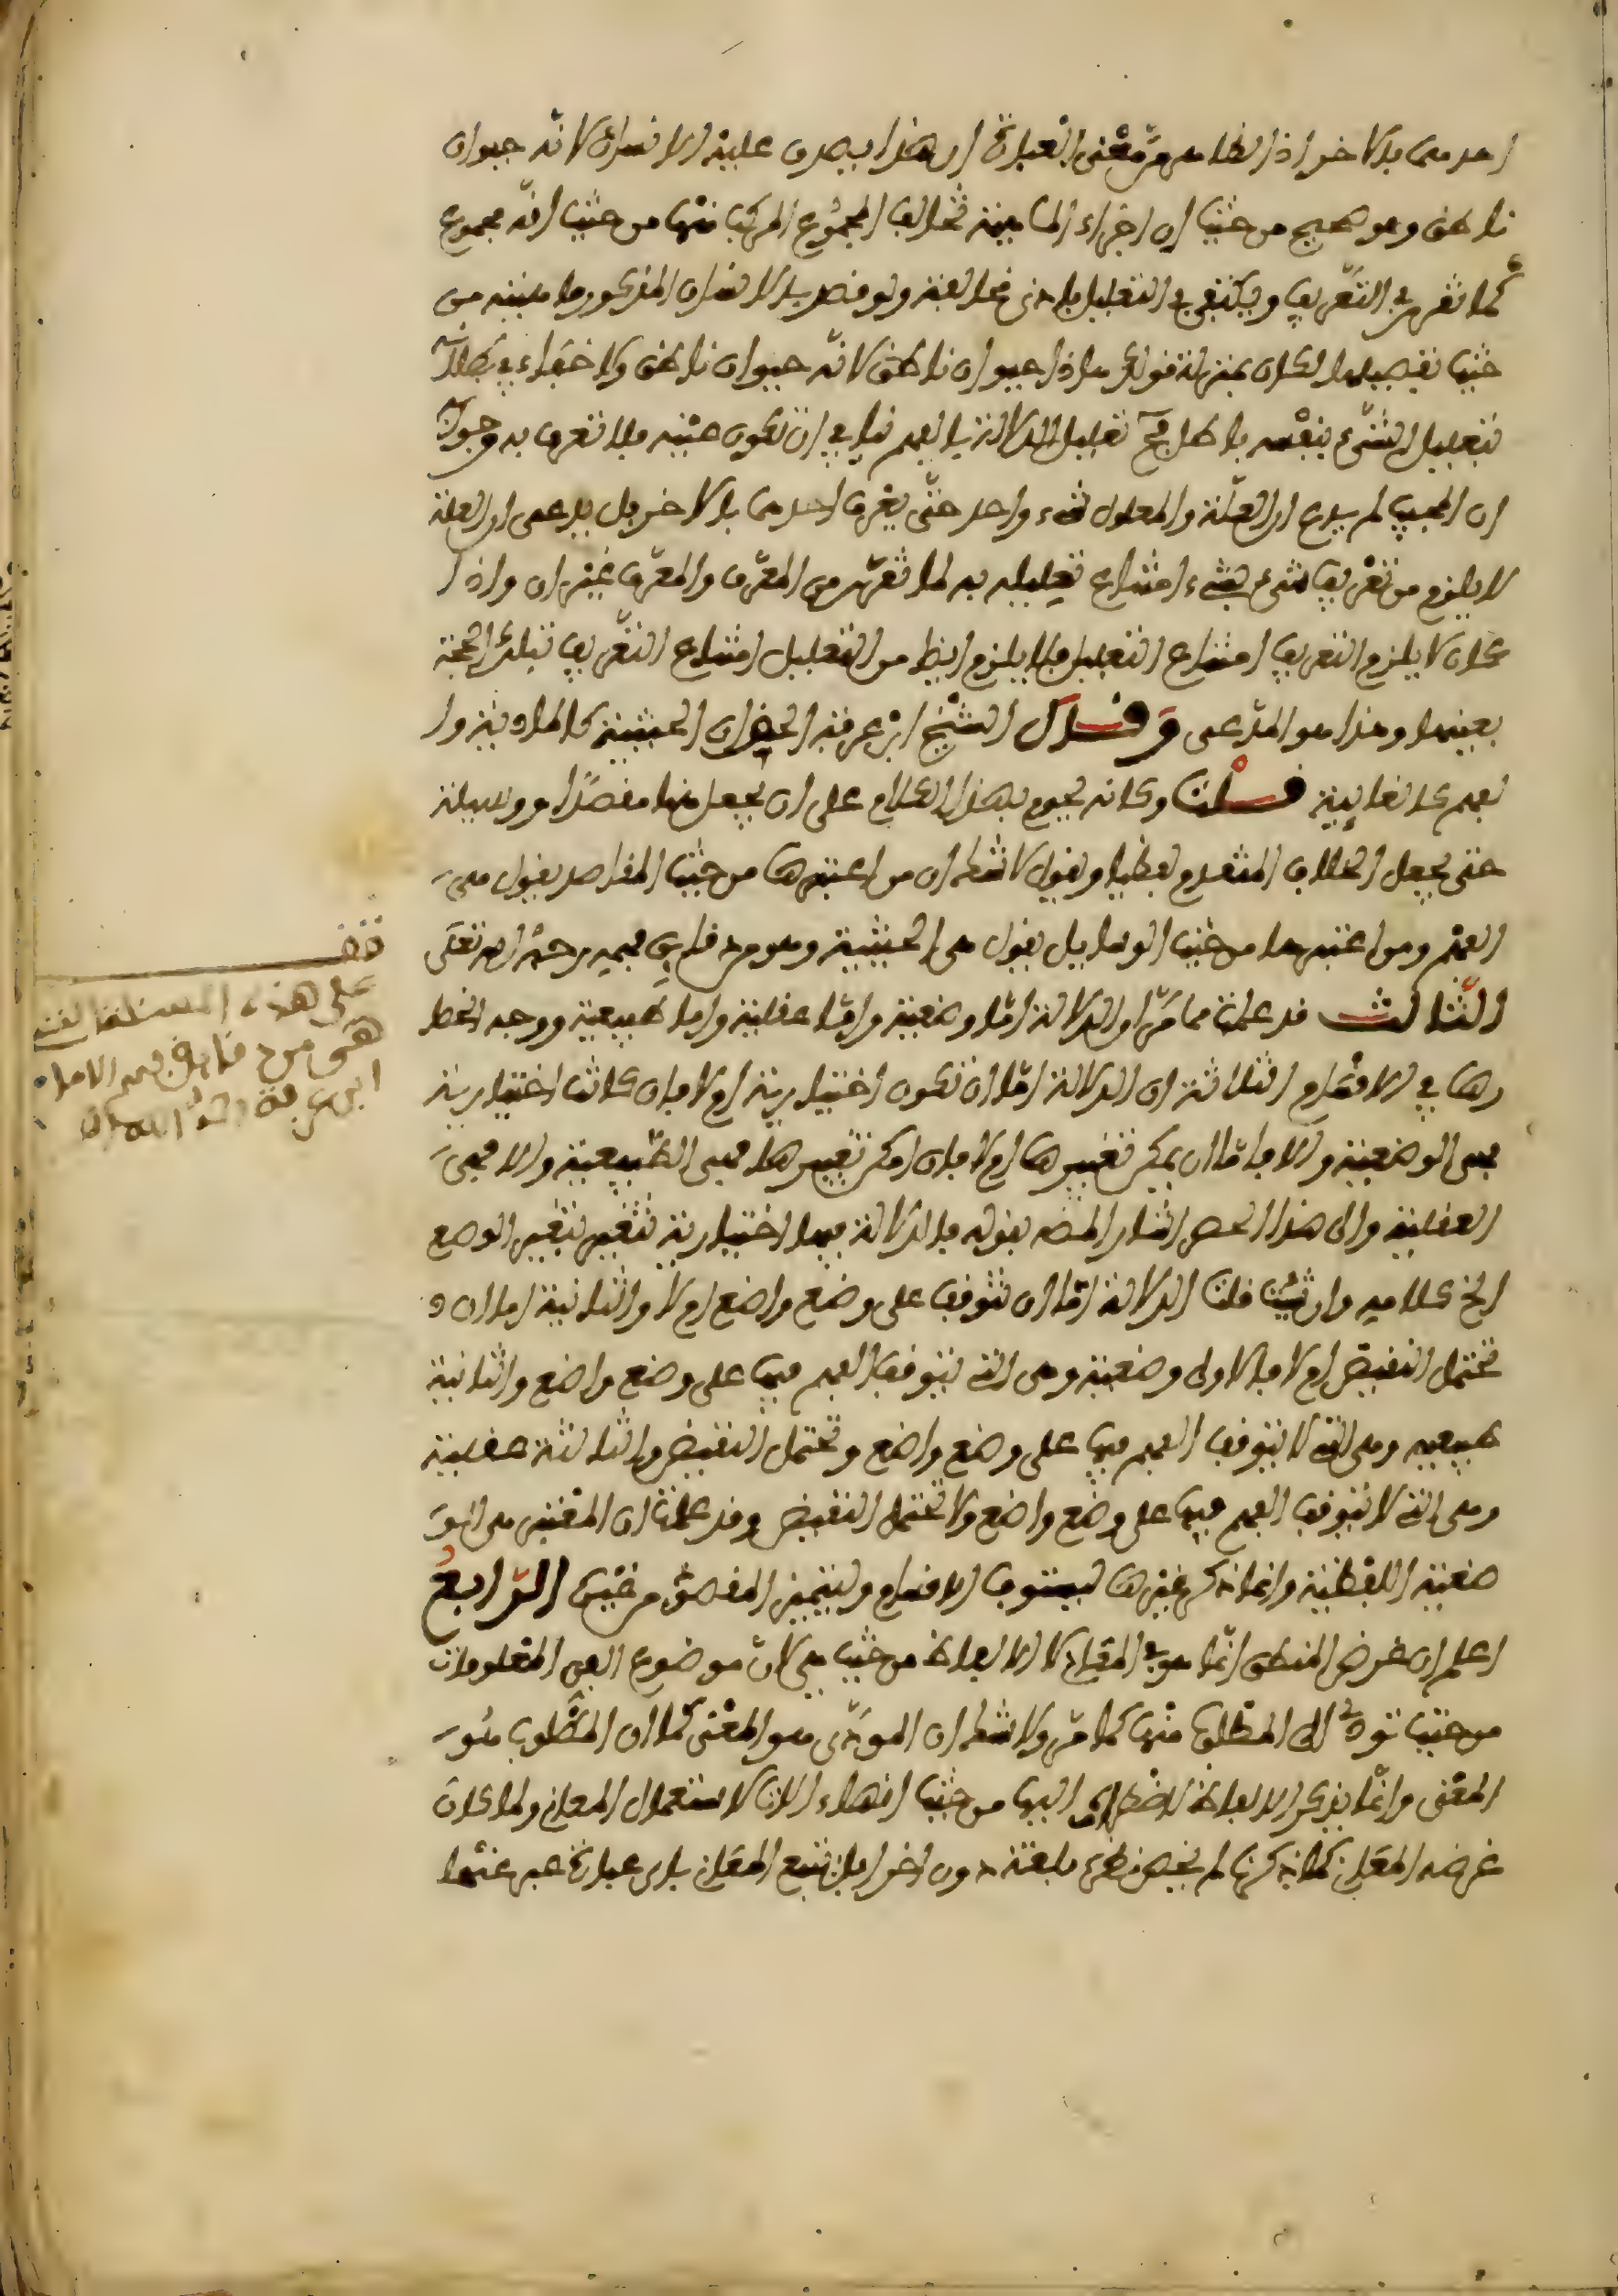 احدهما بالاخر اذ الظاهر من معنى العبارة ان هذا يصدق عليه الانسان لانه حيوان
ناطق وهو صحيح من حيث ان اجزاء الماهية تخالف المجموع المركب منها من حيث انه مجموع
كما تقرر في التعريف ويكتفى في التعليل بادنى مخالفة ولو قصد بالانسان المذكور ماهيته من
حيث تفصيلها لكان بمنزلة قولك هاذا حيوان ناطق لانه حيوان ناطق ولا خفاء في بطلانه
فتعليل الشيء بنفسه باطل فتعليل الدلالة بالفهم ينافي ان تكون عينه فلا تعرف به وجوابه
ان المجيب لم يدع ان العلة والمعلول شيء واحد حتى يعرف احدهما بالاخر بل يدعى ان العلة
لا يلزم من تعريف شيء بشيء امتناع تعليله به لما تقرر من المعرف والمعرف غيران واذا
كان لا يلزم التعريف امتناع التعليل فلا يلزم ايضا من التعليل امتناع التعريف بتلك الحجة
بعينها وهذا هو المدعى وقال الشيخ ابن عرفة الحق ان الحيثية كالمادية وا
لفهم كالغايية قلت وكانه يحوم بهذا الكلام على ان يجعل منها مقصدا ووسيلة
حتى يجعل الخلاف المتقدم لفظيا ونقول لا شك ان من اعتبرها من حيث المقاصد يقول هي
الفهم ومن اعتبرها من حيث الوسايل يقول هي الحيثية وهو من دقايق فهمه رحمه الله تعلى
الثالث قد علمت مما مر ان الدلالة اما وضعية واما عقلية واما طبيعية ووجه انحصا
رها في الاقسام الثلاثة ان الدلالة اما ان تكون اختيارية ام لا فان كانت اختيارية
فهي الوضعية والا فاما ان يمكن تغييرها ام لا فان امكن تغييرها فهي الطبيعية والا فهي
العقلية والى هذا الحصر اشار المص بقوله فالدلالة فيها اختيارية تتغير بتغير الوضع
الخ كلامه وان شئت قلت الدلالة اما ان تتوقف على وضع واضع ام لا والثانية اما ان
تحتمل النقيض ام لا فالاولى وضعية وهي التي يتوقف الفهم فيها على وضع واضع والثانية
طبيعية وهي التي لا يتوقف الفهم فيها على وضع واضع وتحتمل النقيض والثالثة عقلية
وهي التي لا يتوقف الفهم فيها على وضع واضع ولا تحتمل النقيض وقد علمت ان المعتبر هي الو
ضعية اللفظية وانما ذكر غيرها ليستوفي الاقسام وليتميز المقصود من غيره الرابع
اعلم ان غرض المنطقي انما هو في المعاني لا الالفاظ من حيث هي لان موضوع الفن المعلومات
من حيث تودي الى المطلوب منها كما مر ولا شك ان المودي هو المعنى كما ان المطلوب هو
المعنى وانما يذكر الالفاظ لاضطراره اليها من حيث انها الات لاستعمال المعاني ولما كان
غرضه المعاني كما ذكرنا لم يخص نظره بلغة دون اخرى بل تتبع المعاني باي عبارة عبر عنها
قف
على هذه المسئلة
هي من دقايق فهم الامام
ابن عرفة رحمه الله